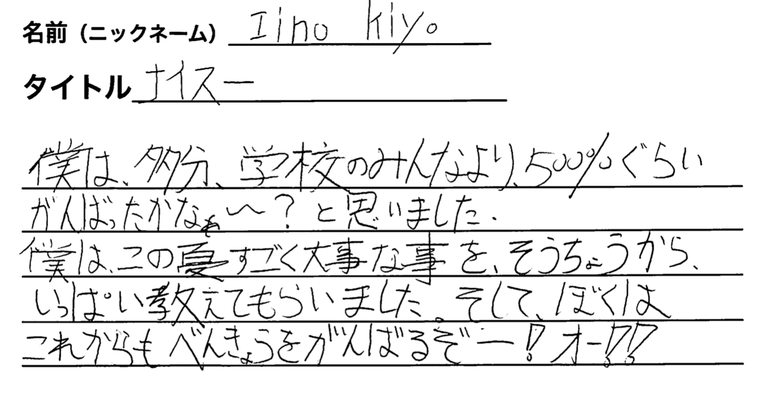 名前（ニックネーム） Iino kiyo
タイトル ナイスー
僕は、多分、学校のみんなより、500%ぐらい
がんばったかなぁ〜？と思いました.
僕は、この夏すごく大事な事を、そうちょうから、
いっぱい教えてもらいました。そして、ぼくは
これからもべんきょうをがんばるぞー！オー!?!?